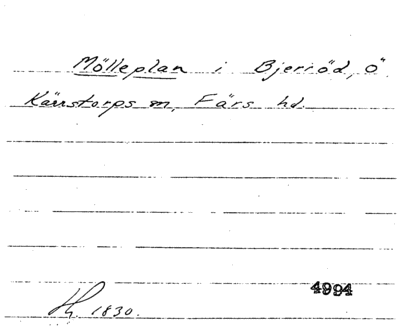 Mölleplan i Bjeriöd, Ö
Kärrstorps m, Färs hd.
4994
Hy. 1830.